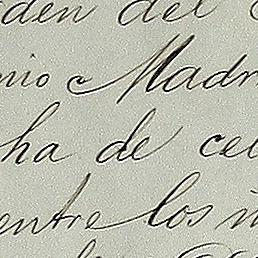 den del
nio c Madr
ha de cel
entre los i